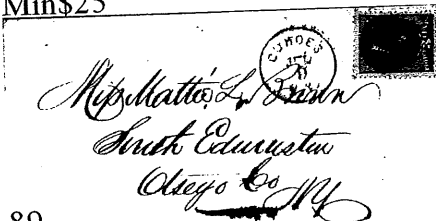 Min$25
COHOES
Miss Mattie L. Brown
South Edmeston
Otsego Co NY
89